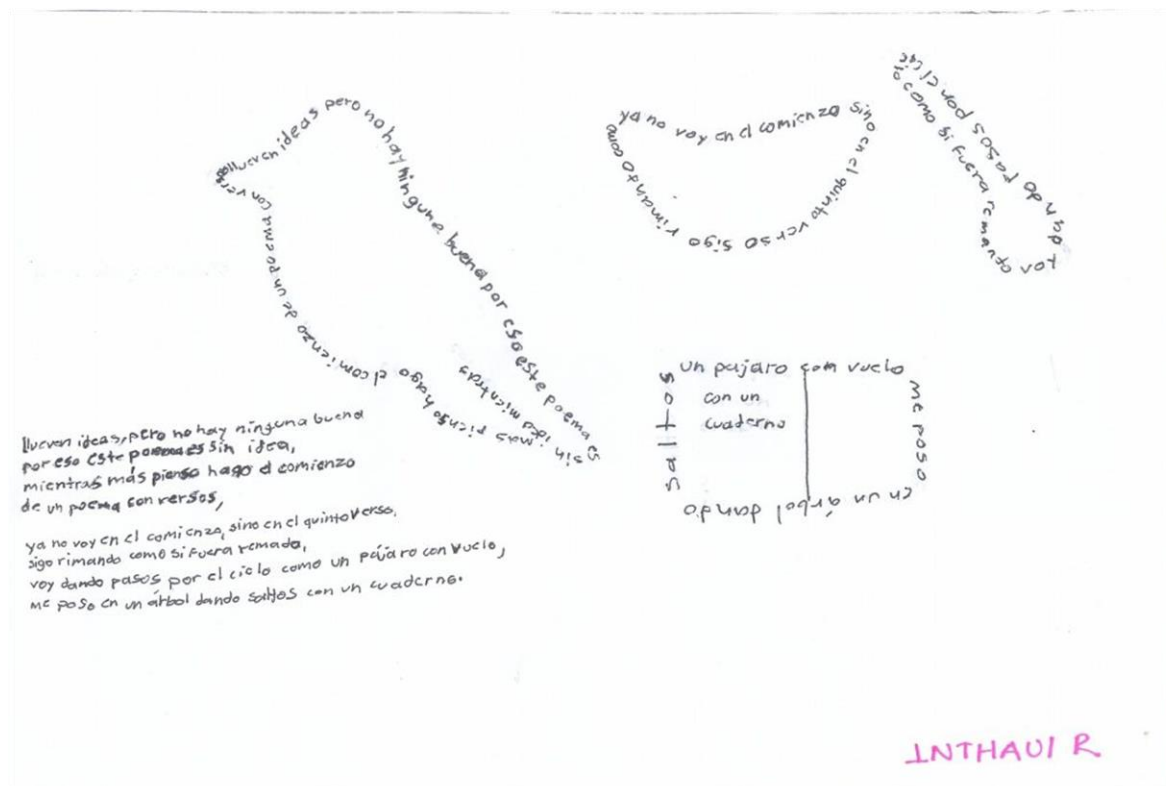 lluevenideas pero no hay ninguna buena por eso este poema es sin idea mientras mas pienso hago el comienzo de un poema con vers
ya no voy en el comienzo sino en el quinto verso sigo rimando como
si fuera remando voy dando pasos por el cie
lo como
un pajaro con vuelo me poso en un árbol dando saltos
con un
cuaderno
llueven ideas, pero no hay ninguna buena
por eso este poema es sin idea,
mientras más pienso hago el comienzo
de un poema con versos,
ya no voy en el comienzo, sino en el quinto verso,
sigo rimando como si fuera remada,
voy dando pasos por el cielo como un pájaro con vuelo,
me poso en un árbol dando saltos con un cuaderno.
INTHAUI R